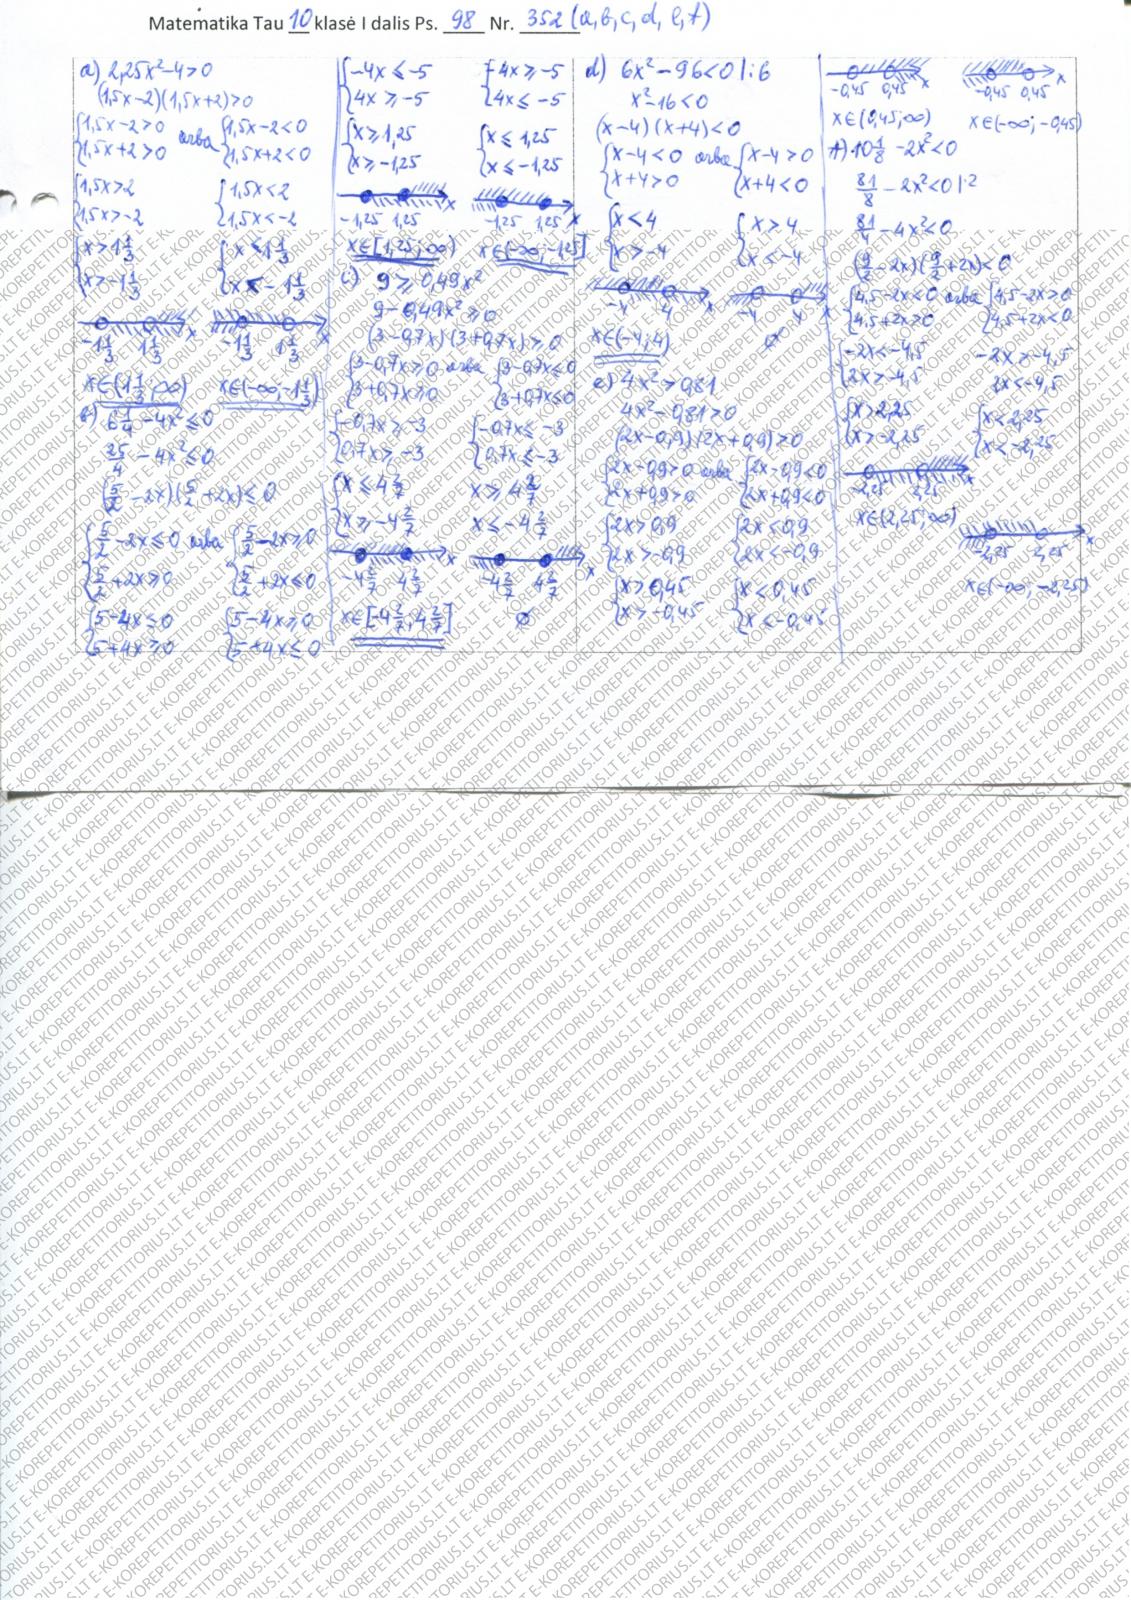 Matematika Tau 10 klasė I dalis Ps. 98 Nr. 352 (a, b, c, d, e, f)
a) 2,25x²-4>0
(1,5x-2)(1,5x+2)>0
{1,5x-2>0 arba {1,5x-2<0
{1,5x+2>0 {1,5x+2<0
{1,5x>2 {1,5x<2
{1,5x>-2 {1,5x<-2
{x>1 1/3 {x<1 1/3
{x>-1 1/3 {x<-1 1/3
-1 1/3 1 1/3 x -1 1/3 1 1/3 x
x∈(1 1/3; ∞) x∈(-∞;-1 1/3)
b) 6 1/4 -4x²≤0
25/4 -4x²≤0
(5/2 -2x)(5/2 +2x)≤0
{5/2 -2x≤0 arba {5/2 -2x≥0
{5/2 +2x≥0 {5/2 +2x≤0
{5-4x≤0 {5-4x≥0
{5+4x≥0 {5+4x≤0
{-4x≤-5 {-4x≥-5
{4x≥-5 {4x≤-5
{x≥1,25 {x≤1,25
{x≥-1,25 {x≤-1,25
-1,25 1,25 x -1,25 1,25 x
x∈[1,25;∞) x∈(-∞;-1,25]
c) 9≥0,49x²
9-0,49x²≥0
(3-0,7x)(3+0,7x)≥0
{3-0,7x≥0 arba {3-0,7x≤0
{3+0,7x≥0 {3+0,7x≤0
{-0,7x≥-3 {-0,7x≤-3
{0,7x≥-3 {0,7x≤-3
{x≤4 2/7 x≥4 2/7
{x≥-4 2/7 x≤-4 2/7
-4 2/7 4 2/7 x -4 2/7 4 2/7 x
x∈[-4 2/7; 4 2/7] ∅
d) 6x²-96<0 |:6
x²-16<0
(x-4)(x+4)<0
{x-4<0 arba {x-4>0
{x+4>0 {x+4<0
{x<4 {x>4
{x>-4 {x<-4
-4 4 x -4 4 x
x∈(-4;4) ∅
e) 4x²>0,81
4x²-0,81>0
(2x-0,9)(2x+0,9)>0
{2x-0,9>0 arba {2x-0,9<0
{2x+0,9>0 {2x+0,9<0
{2x>0,9 {2x<0,9
{2x>-0,9 {2x<-0,9
{x>0,45 {x<0,45
{x>-0,45 {x<-0,45
-0,45 0,45 x -0,45 0,45 x
x∈(0,45;∞) x∈(-∞;-0,45)
f) 10 1/8 -2x²<0
81/8 -2x²<0 |·2
81/4 -4x²<0
(9/2 -2x)(9/2 +2x)<0
{4,5-2x<0 arba {4,5-2x>0
{4,5+2x>0 {4,5+2x<0
{-2x<-4,5 -2x>-4,5
{2x>-4,5 2x<-4,5
{x>2,25 {x<2,25
{x>-2,25 {x<-2,25
-2,25 2,25 x
x∈(2,25;∞)
-2,25 2,25 x
x∈(-∞;-2,25)
E-KOREPETITORIUS.LT